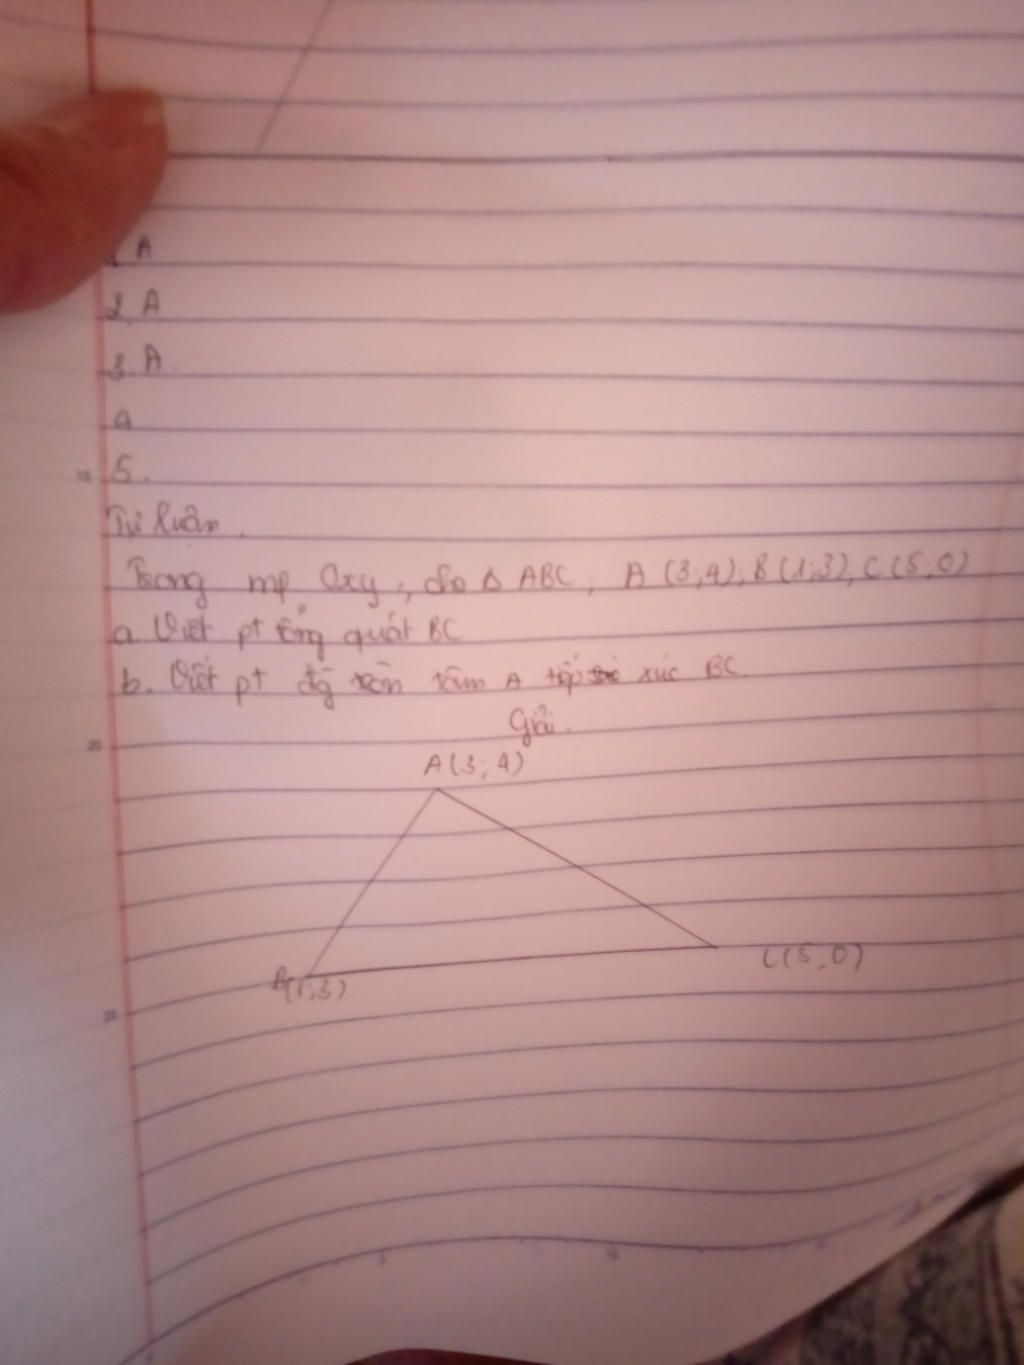 A
2. A
3. A.
4
5.
Tự luận.
Trong mp Oxy, cho Δ ABC, A (3;4), B (1;3), C (5;0)
a. Viết pt tổng quát BC
b. Viết pt đg tròn tâm A tiếp xúc BC.
Giải.
A(3;4)
C(5;0)
B(1;3)
15
20
25